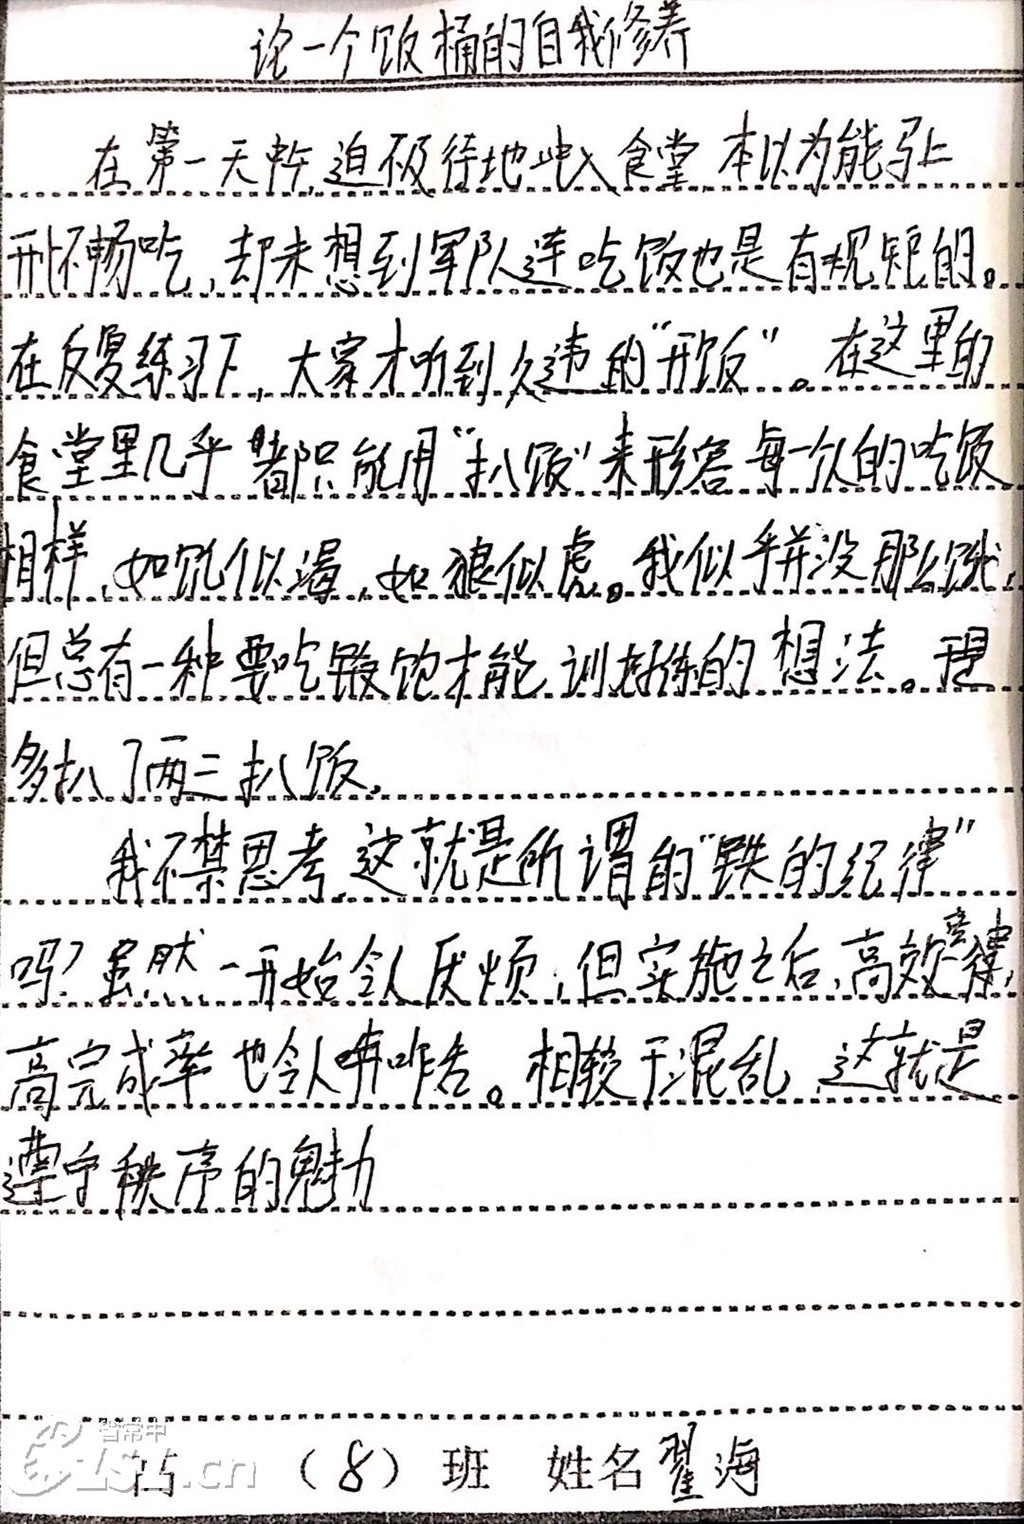 论一个饭桶的自我修养
在第一天中午,迫不及待地冲入食堂,本以为能马上
开怀畅吃,却未想到军队连吃饭也是有规矩的。
在反复练习下,大家才听到久违的“开饭”。在这里的
食堂里几乎都只能用“扒饭”来形容每一个人的吃饭
相样,如饥似渴,如狼似虎。我似乎并没那么饿,
但总有一种要吃饱才能训练的想法。
多扒了两三扒饭。
我不禁思考,这就是所谓的“铁的纪律”
吗?虽然一开始令人厌烦,但实施之后,高效率,
高完成率也令人咋舌。相较于混乱,这就是
遵守秩序的魅力
省常中
LSZ.cn
(8)班 姓名 翟海